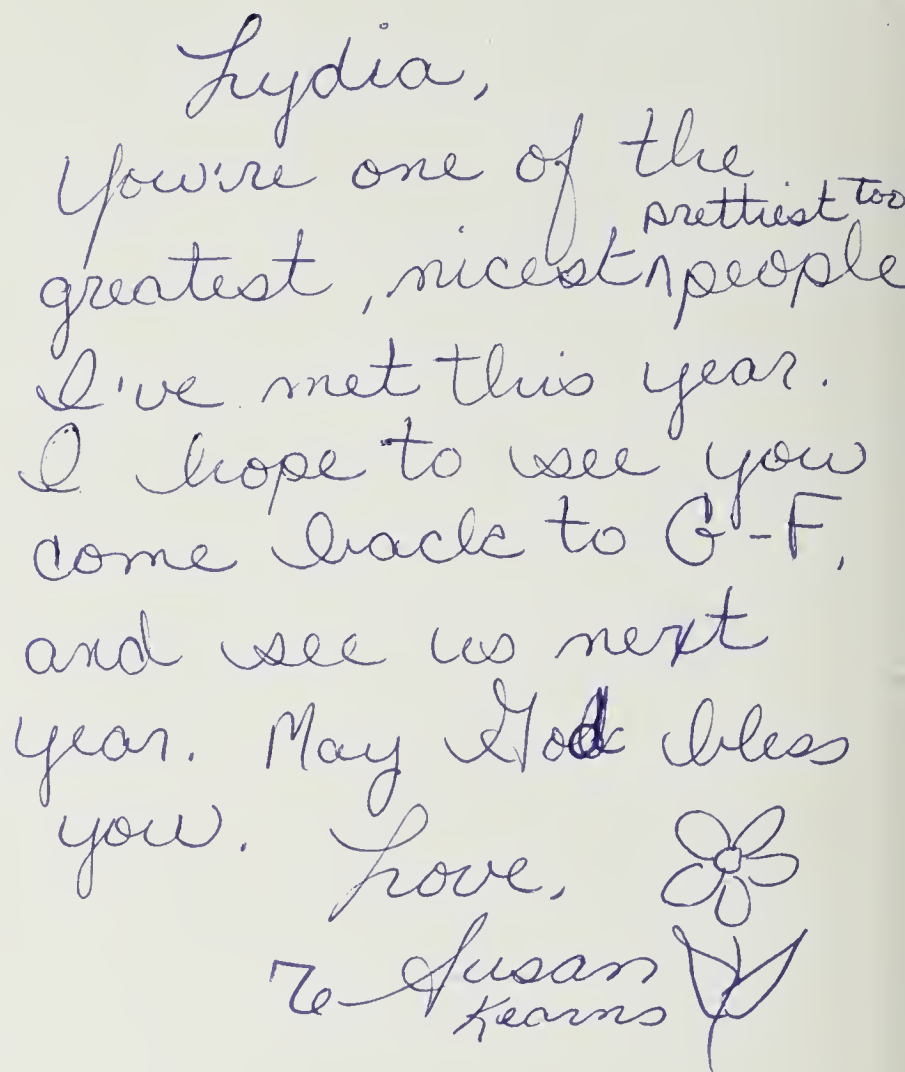 Lydia,
You're one of the
prettiest too
greatest, nicest ^ people
I've met this year.
I hope to see you
come back to G-F,
and see us next
year. May God bless
you. Love,
Susan
Kearns